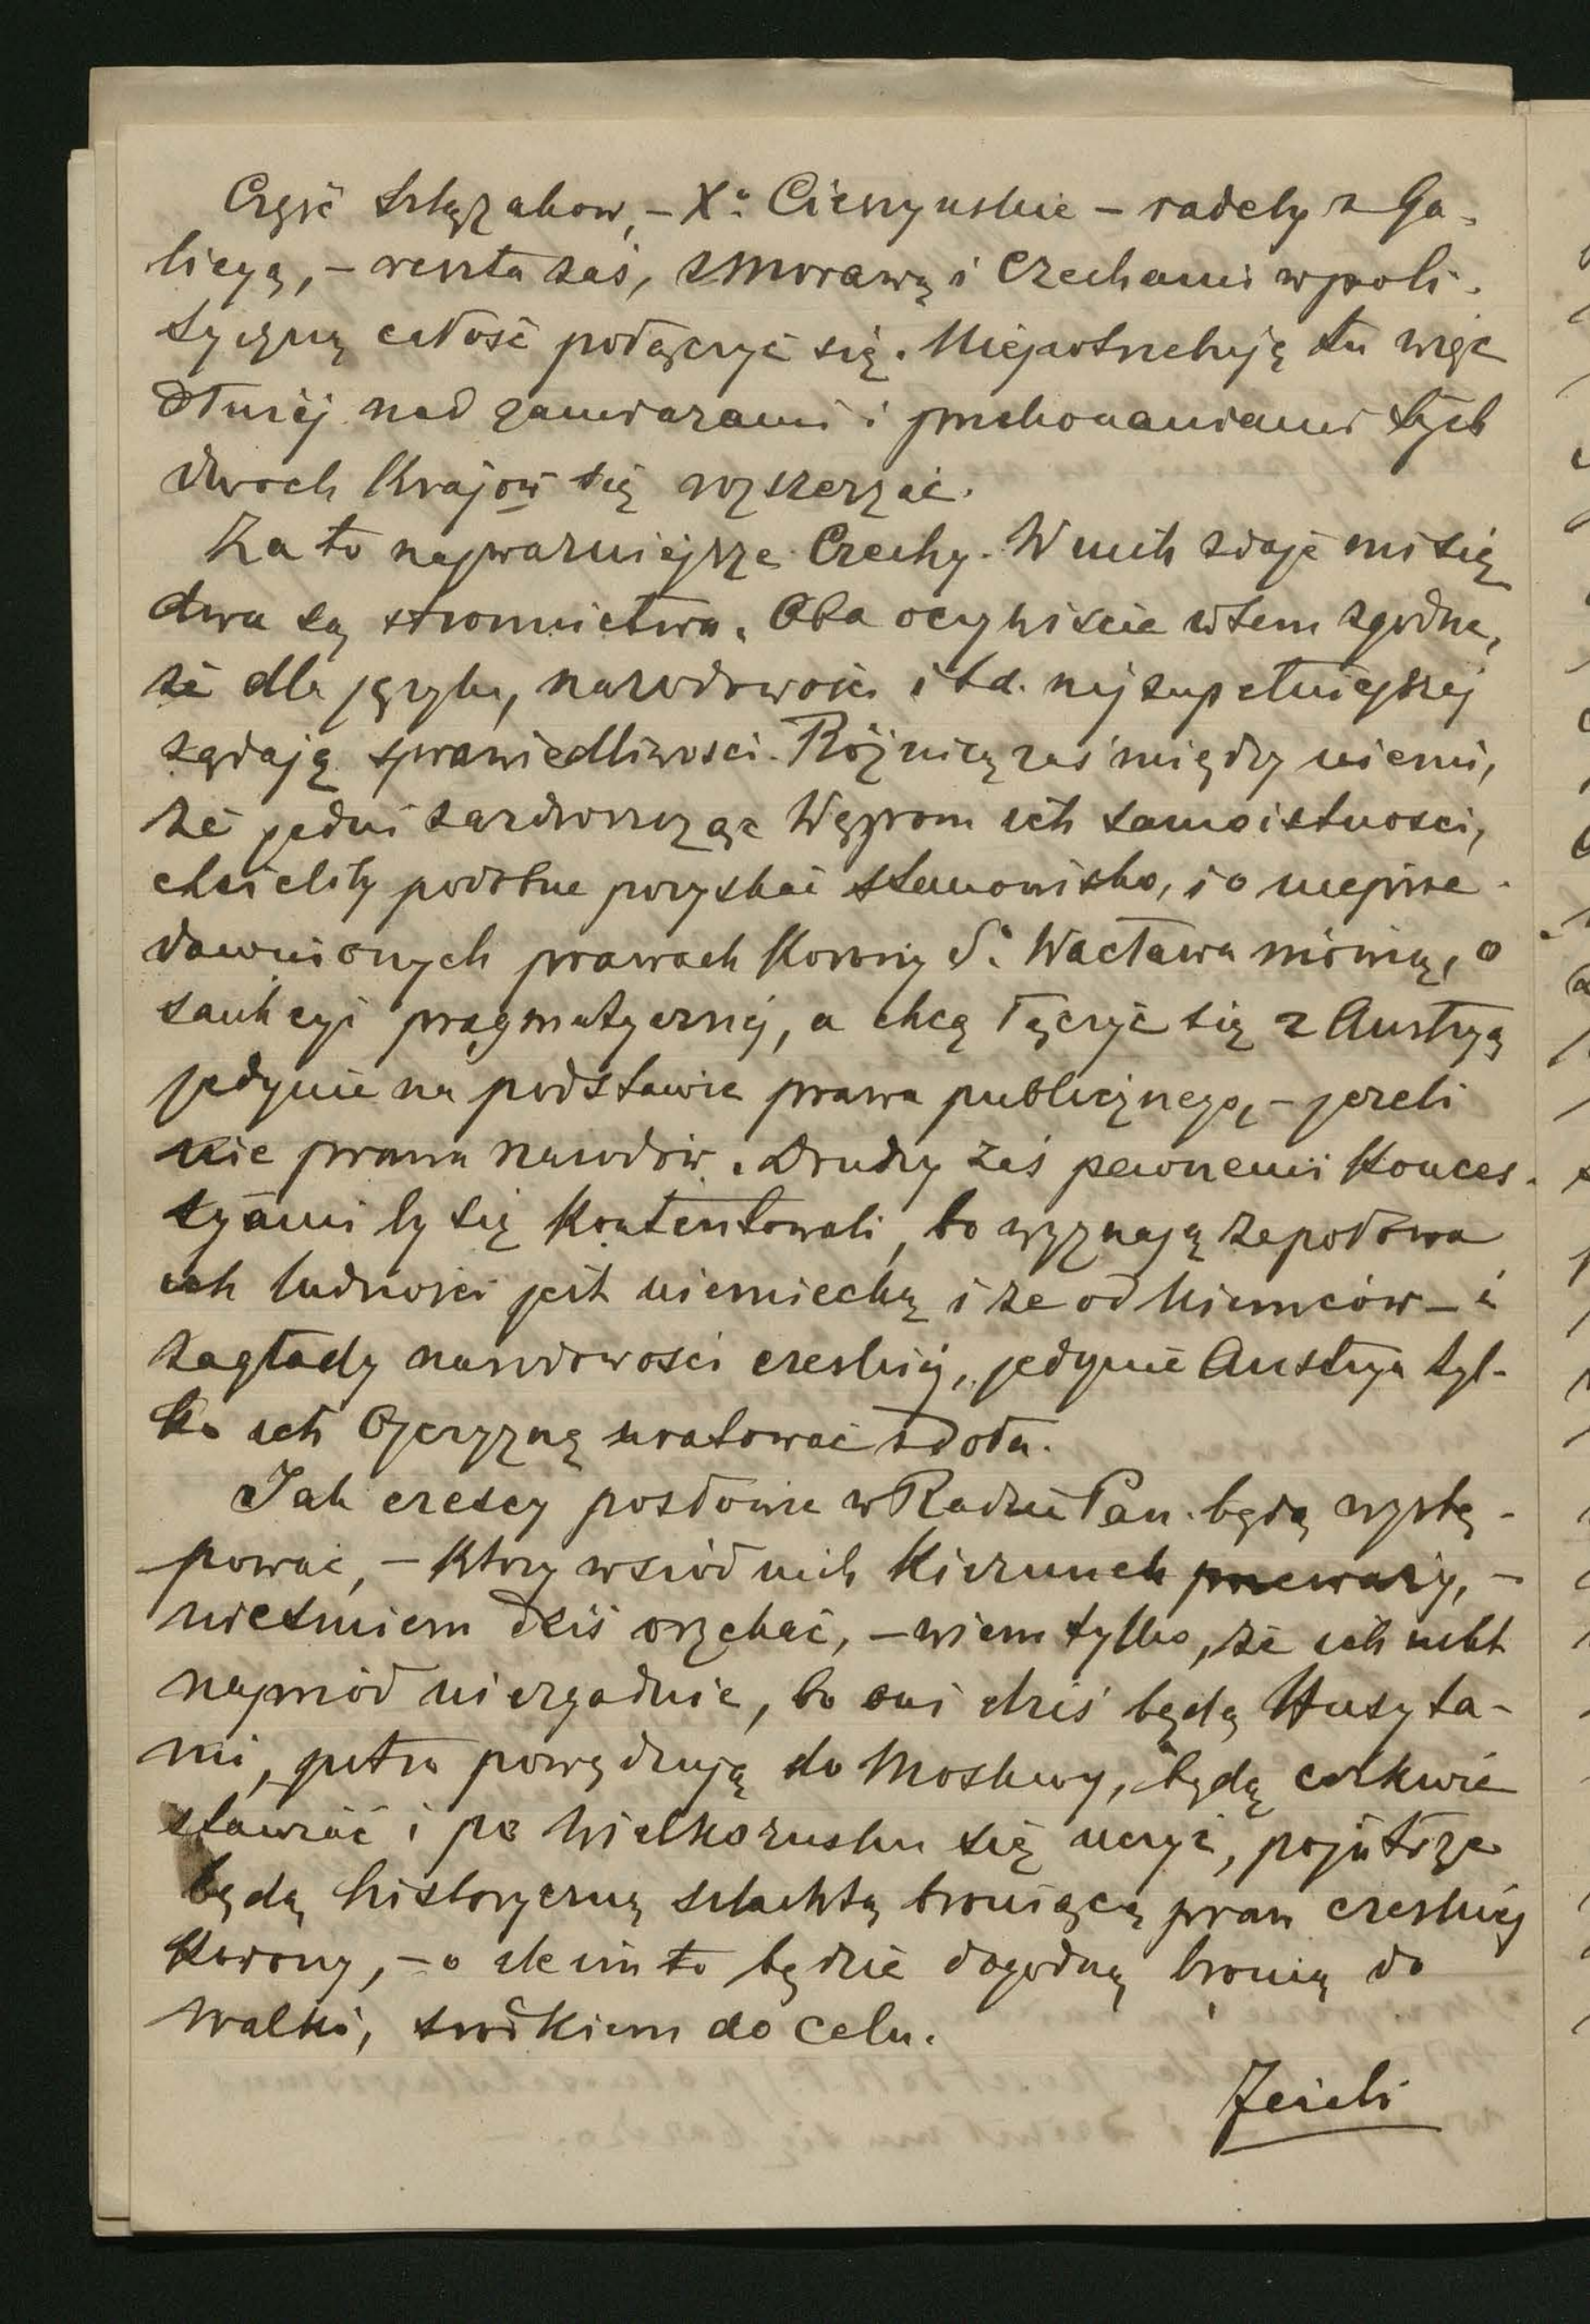 Część Szlązakow, – X.º Cieszyńskie – radeby z Ga-
licyą, – reszta zaś, z Morawą i Czechami w poli-
tyczną całość połączyć się. Niepotrzebuję tu więc
dłużej nad zamiarami i przekonaniami tych
dwoch Krajow się rozszerzać.
Za to najważniejsze Czechy. W nich zdaje mi się
dwa są stronnictwa. Oba oczywiście w tem zgodne,
że dla języka, narodowości i t.d. najzupełniejszej
żądają sprawiedliwości. Różnicą zaś między niemi,
że jedni zazdroszcząc Węgrom ich samoistności,
chcieliby podobne pozyskać stanowisko, i o nieprze-
dawnionych prawach Korony Sº Wacława mówią, o
sankcyi pragmatycznej, a chcą łączyć się z Austryą
jedynie na podstawie prawa publicznego, – jeżeli
nie prawa narodów. Drudzy zaś pewnemi Konces-
syami by się Kontentowali, bo wyznają że połowa
ich ludności jest niemiecką i że od Niemców – i
zagłady narodowości czeskiej, jedynie Austrya tyl-
ko ich Ojczyznę uratować zdoła.
Jak czescy posłowie w Radzie Pań. będą wystę-
pować, – Który wśród nich Kierunek przeważy, –
nieśmiem dziś orzekać, – wiem tylko, że ich nikt
naprzód niezgadnie, bo oni dziś będą Husyta-
mi, jutro powędrują do Moskwy, będą cerkwie
stawiać i po Wielkorusku się uczyć, pojutrze
będą historyczną szlachtą broniącą praw czeskiej
Korony, – o ile im to będzie dogodną bronią do
walki, środkiem do celu.
Jeżeli